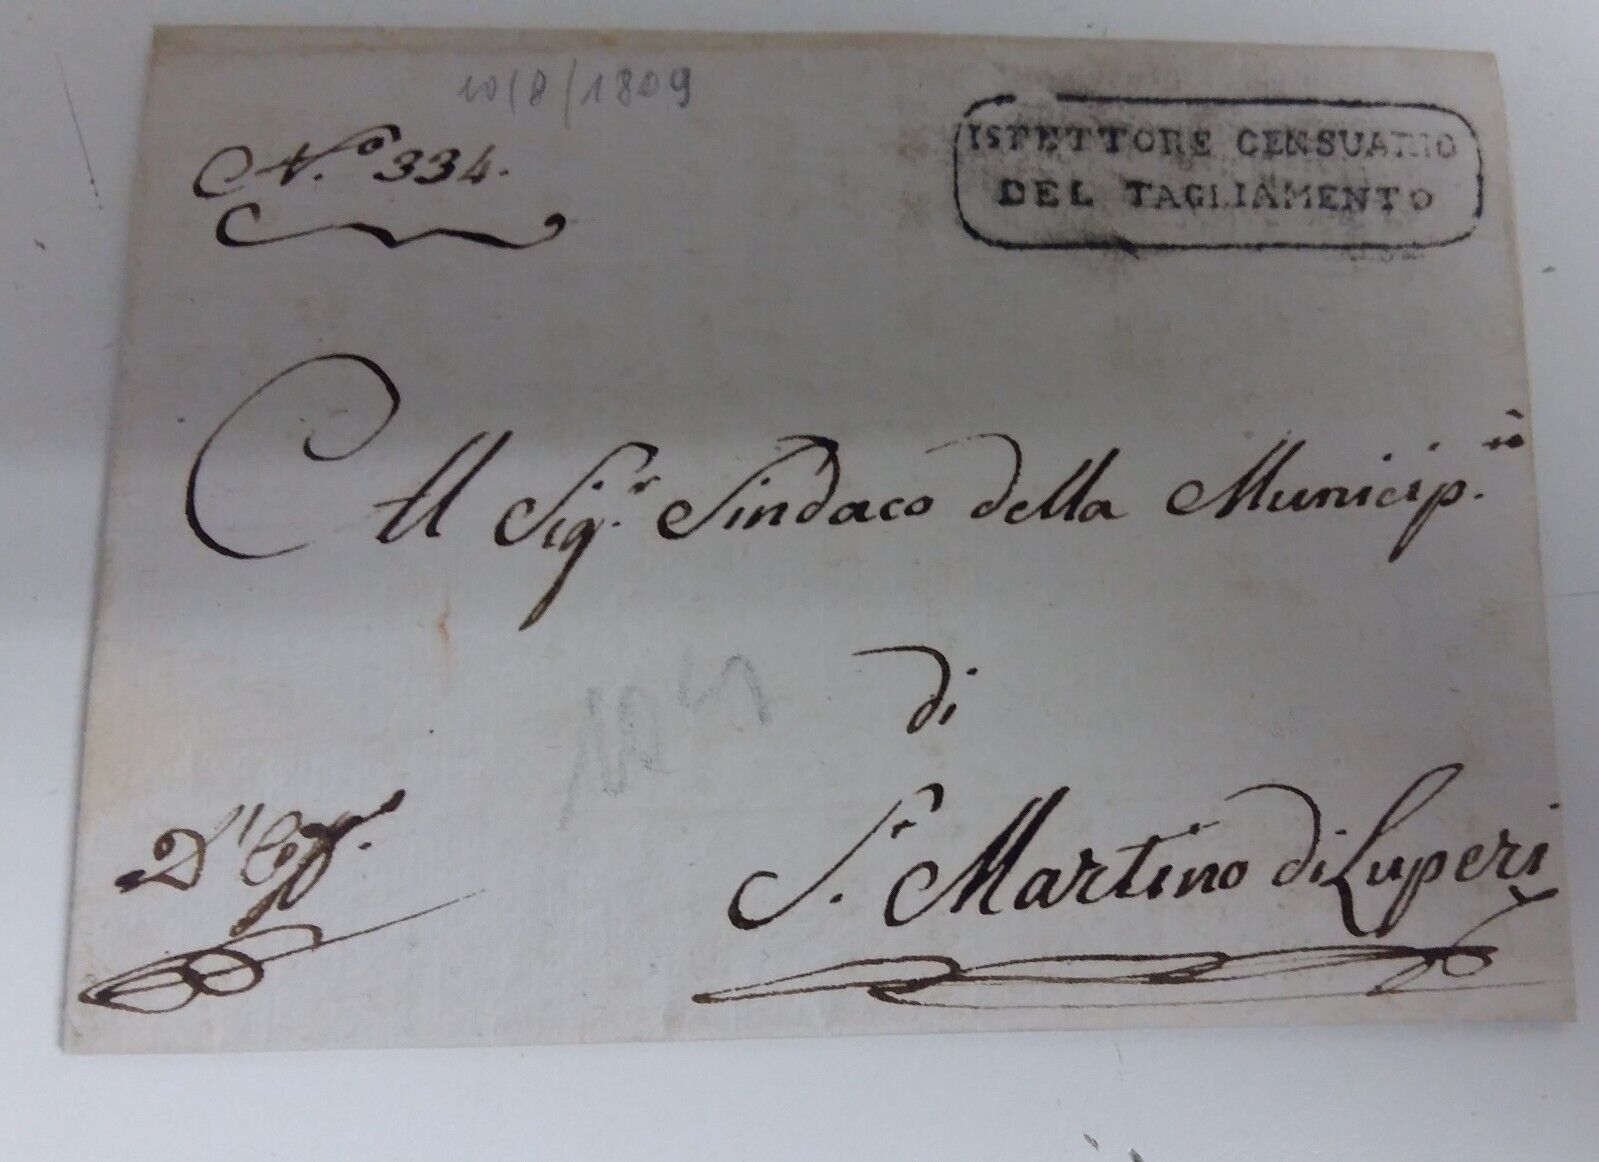 10/8/1809
N.º 334.
ISPETTORE CENSUARIO
DEL TAGLIAMENTO
Al Sig.r Sindaco della Municip.tà
di
D'Uff.º
S. Martino di Luperi